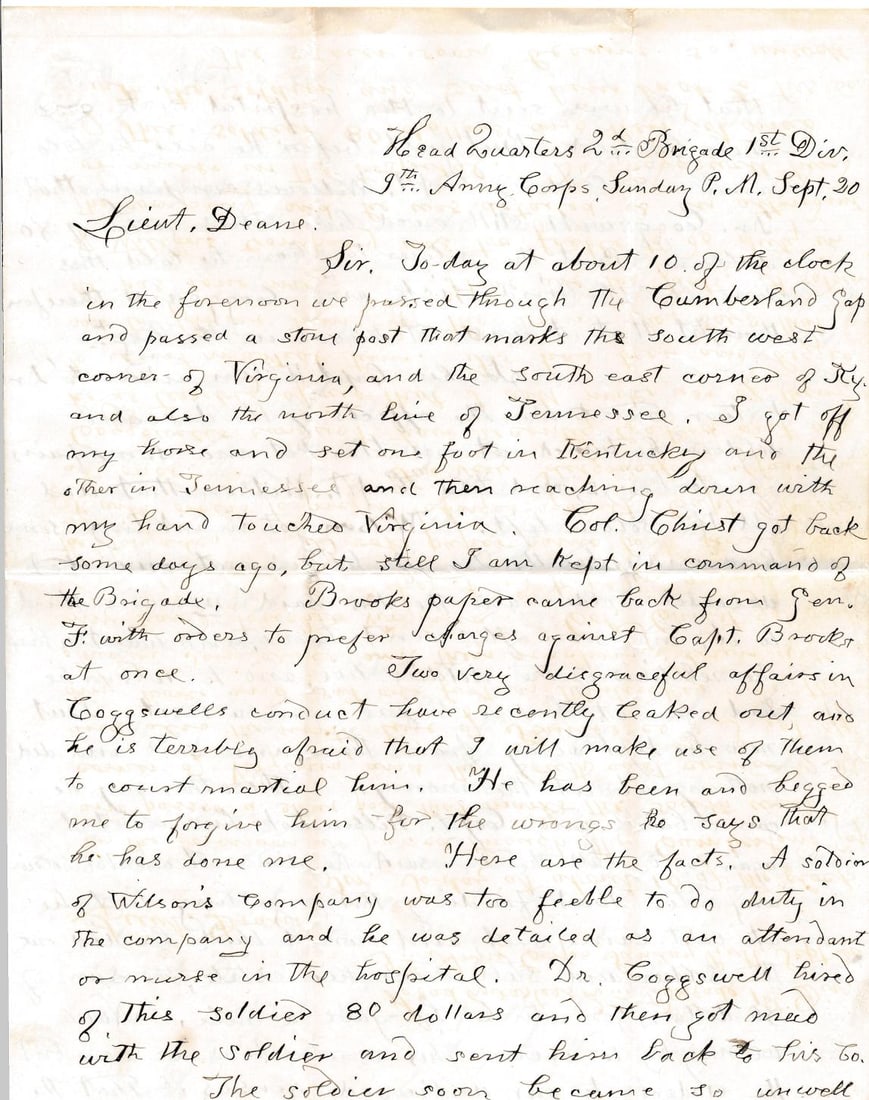 Head Quarters 2d Brigade 1st Div.
9th Army Corps, Sunday P. M. Sept. 20
Lieut. Deane.
Sir. To-day at about 10. of the clock
in the forenoon we passed through the Cumberland Gap
and passed a stone post that marks the south west
corner of Virginia, and the south east corner of Ky.
and also the north line of Tennessee. I got off
my horse and set one foot in Kentucky and the
other in Tennessee and then reaching down with
my hand touched Virginia. Col. Christ got back
some days ago, but still I am kept in command of
the Brigade. Brooks paper came back from Gen.
F. with orders to prefer charges against Capt. Brooks
at once. Two very disgraceful affairs in
Coggswells conduct have recently leaked out, and
he is terribly afraid that I will make use of them
to court martial him. He has been and begged
me to forgive him for the wrongs he says that
he has done me. Here are the facts. A soldier
of Wilson's Company was too feeble to do duty in
the company and he was detailed as an attendant
or nurse in the hospital. Dr. Coggswell hired
of this soldier 80 dollars and then got mad
with the soldier and sent him back to his Co.
The soldier soon became so unwell